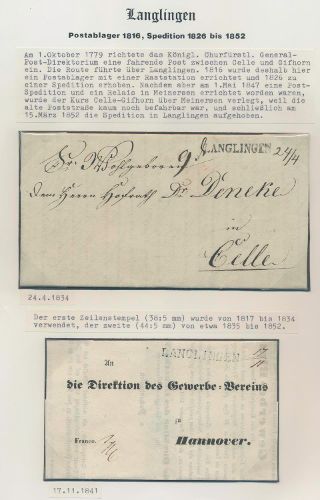 Langlingen
Postablager 1816, Spedition 1826 bis 1852
Am 1.Oktober 1779 richtete das Königl. Churfürstl. General-
Post-Direktorium eine fahrende Post zwischen Celle und Gifhorn
ein. Die Route führte über Langlingen. 1816 wurde deshalb hier
ein Postablager mit einer Raststation errichtet und 1826 zu
einer Postspedition erhoben. Nachdem aber am 1.Mai 1847 eine Post-
Spedition und ein Relais in Meinersen errichtet worden waren,
wurde der Kurs Celle-Gifhorn über Meinersen verlegt, weil die
alte Poststraße kaum noch befahrbar war, und schließlich am
15.März 1852 die Spedition in Langlingen aufgehoben.
LANGLINGEN 24/4
Sr. Wohlgeboren
Dem Herrn Hofrath Dr. Deneke
in
Celle
24.4.1834
Der erste Zeilenstempel (38:5 mm) wurde von 1817 bis 1834
verwendet, der zweite (44:5 mm) von etwa 1835 bis 1852.
LANGLINGEN 17/11
An
die Direktion des Gewerbe-Vereins
zu
Franco.
Hannover.
17.11.1841